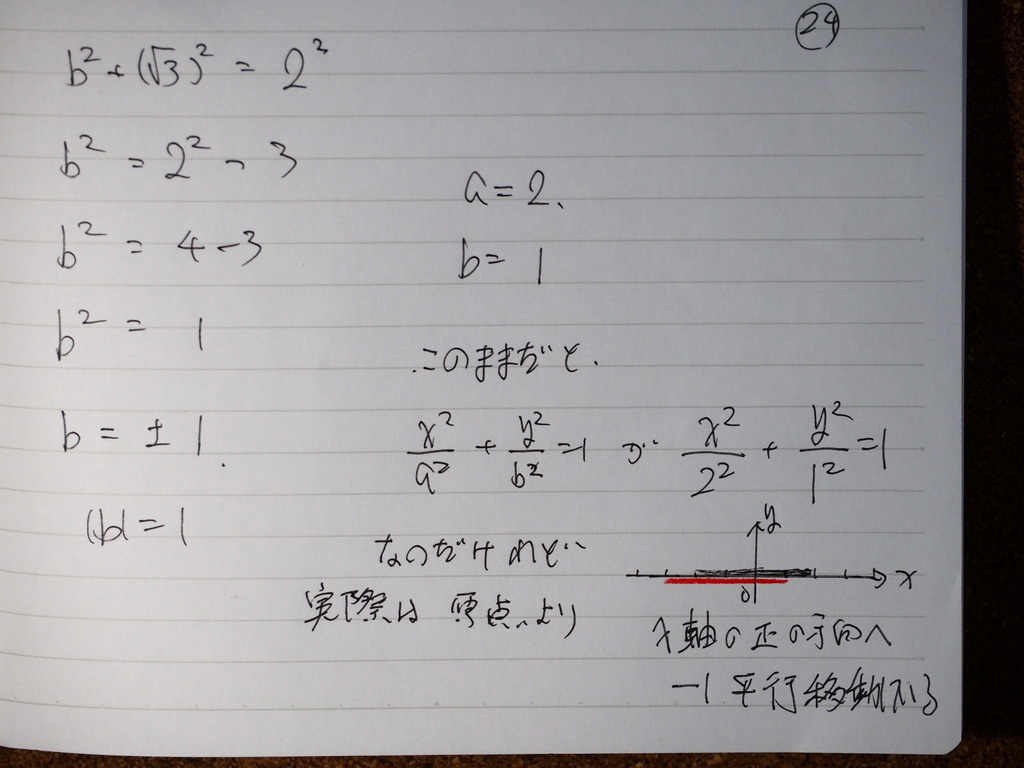 ㉔
b² + (√3)² = 2²
b² = 2² - 3
b² = 4 - 3
b² = 1
b = ± 1.
|b| = 1
a = 2、
b = 1
このままだと、
x²/a² + y²/b² = 1 が x²/2² + y²/1² = 1
なのだけれど
y
0
x
実際は 原点より
x軸の正の方向へ
-1 平行移動している